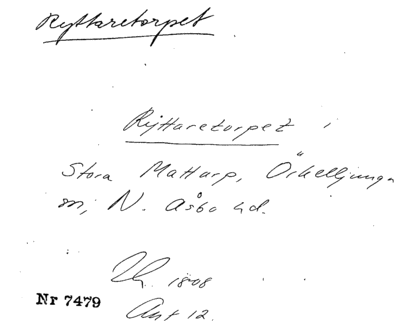 Ryttaretorpet
Ryttaretorpet i
Stora Mattarp, Örkelljunga
sn, N. Åsbo hd.
1808
Nr 7479
Akt 12.